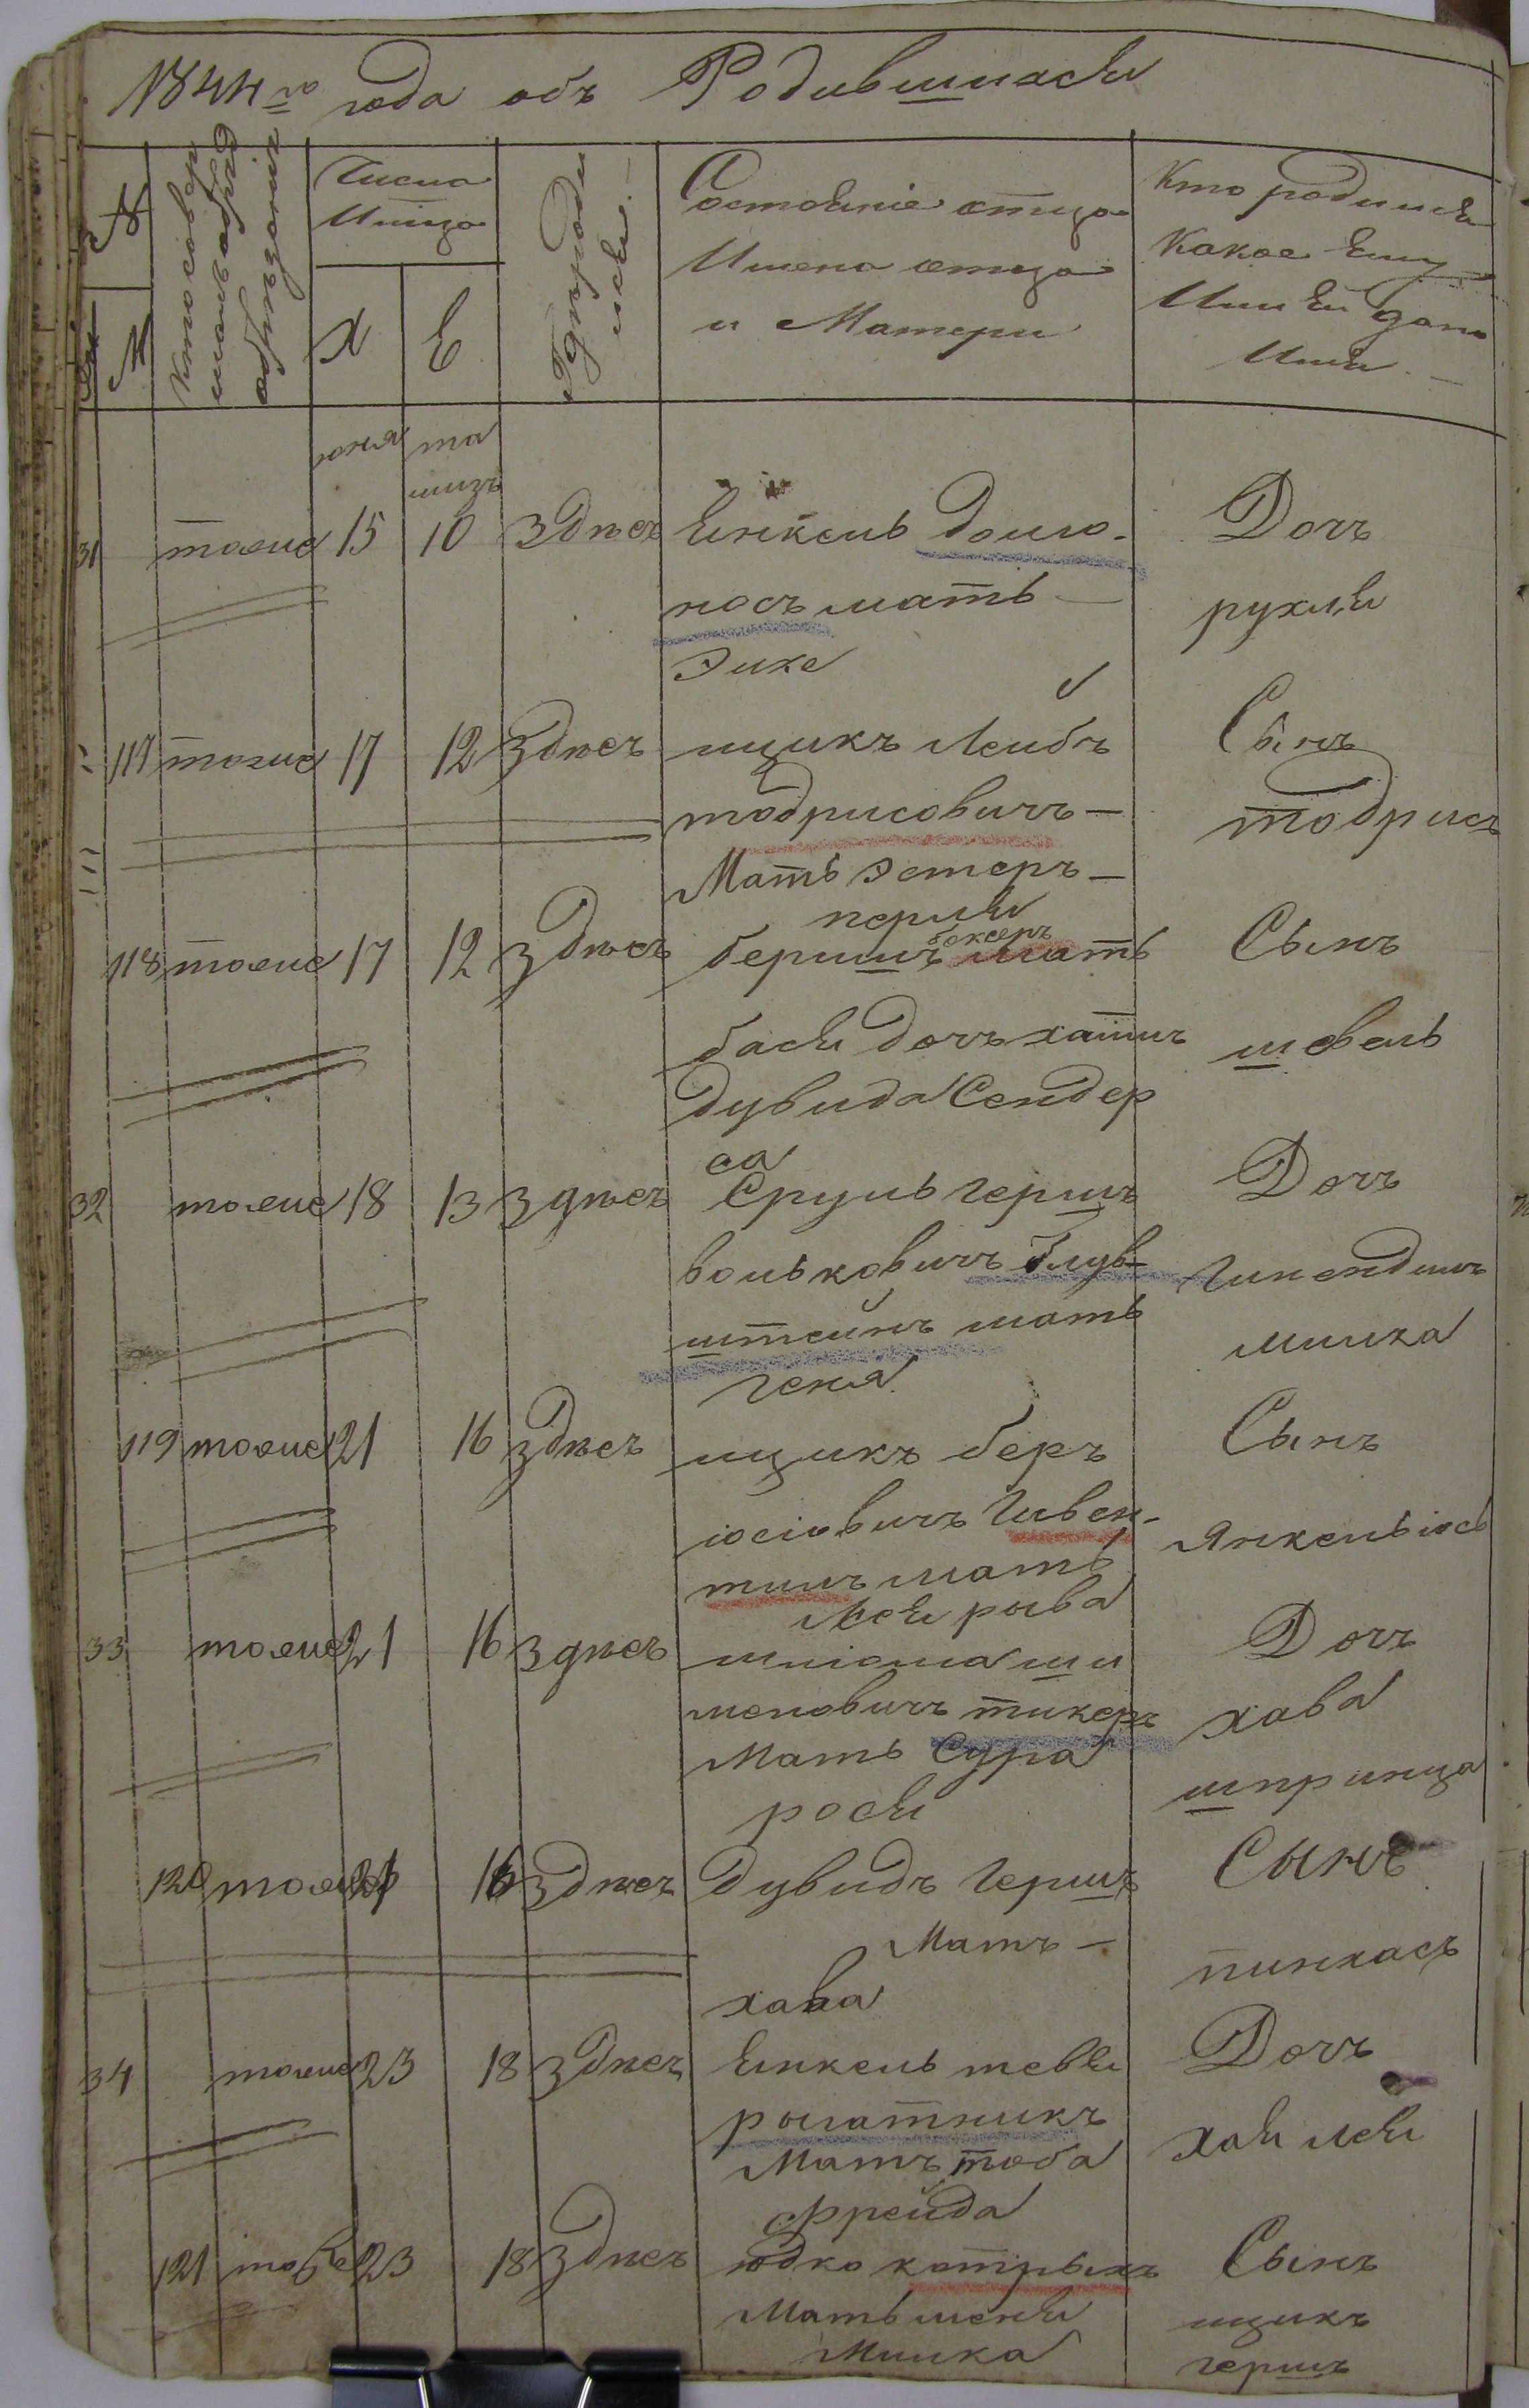 1844го года объ Родившихся
№
М
Кто совер
шалъ обрядъ
обрѣзанія
Число
Х
Е
Гдѣ роди
лся
Состояніе отца
Имена отца
и Матери
Кто родился
Какое Ему
Или Ей дано
Имя
юня
та
музъ
31 тоже 15 10 Здѣсь Янкель Долго-
носъ мать
Эйхе
Дочь
рухля
117 тоже 17 12 Здѣсь ицикъ Лейбъ
тодрисовичъ —
Мать Эстеръ —
перля
Сынъ
тодрисъ
118 тоже 17 12 здѣсь бершъ мать
бася дочь хаимъ
Дувида Сендер
са
Сынъ
шевель
32 тоже 18 13 здѣсь Сруль гершъ
вольковичъ
штейнъ мать
геня
Дочь
мишка
119 тоже 21 16 здѣсь ицикъ беръ
іосіовичъ
мать
Лея рыва
Сынъ
Янкель іось
33 тоже 21 16 здѣсь шліома ши
меновичъ тикеръ
Мать Сура
рося
Дочь
хава
шпринца
120 тоже 21 16 здѣсь Дувидъ гершъ
Мать —
хава
Сынъ
пинхасъ
34 тоже 23 18 здѣсь Янкель тевея
рогатникъ
Мать тоба
фрейда
Дочь
хая лея
121 тоже 23 18 здѣсь юдко
Мать шеня
Минка
Сынъ
ицикъ
гершъ